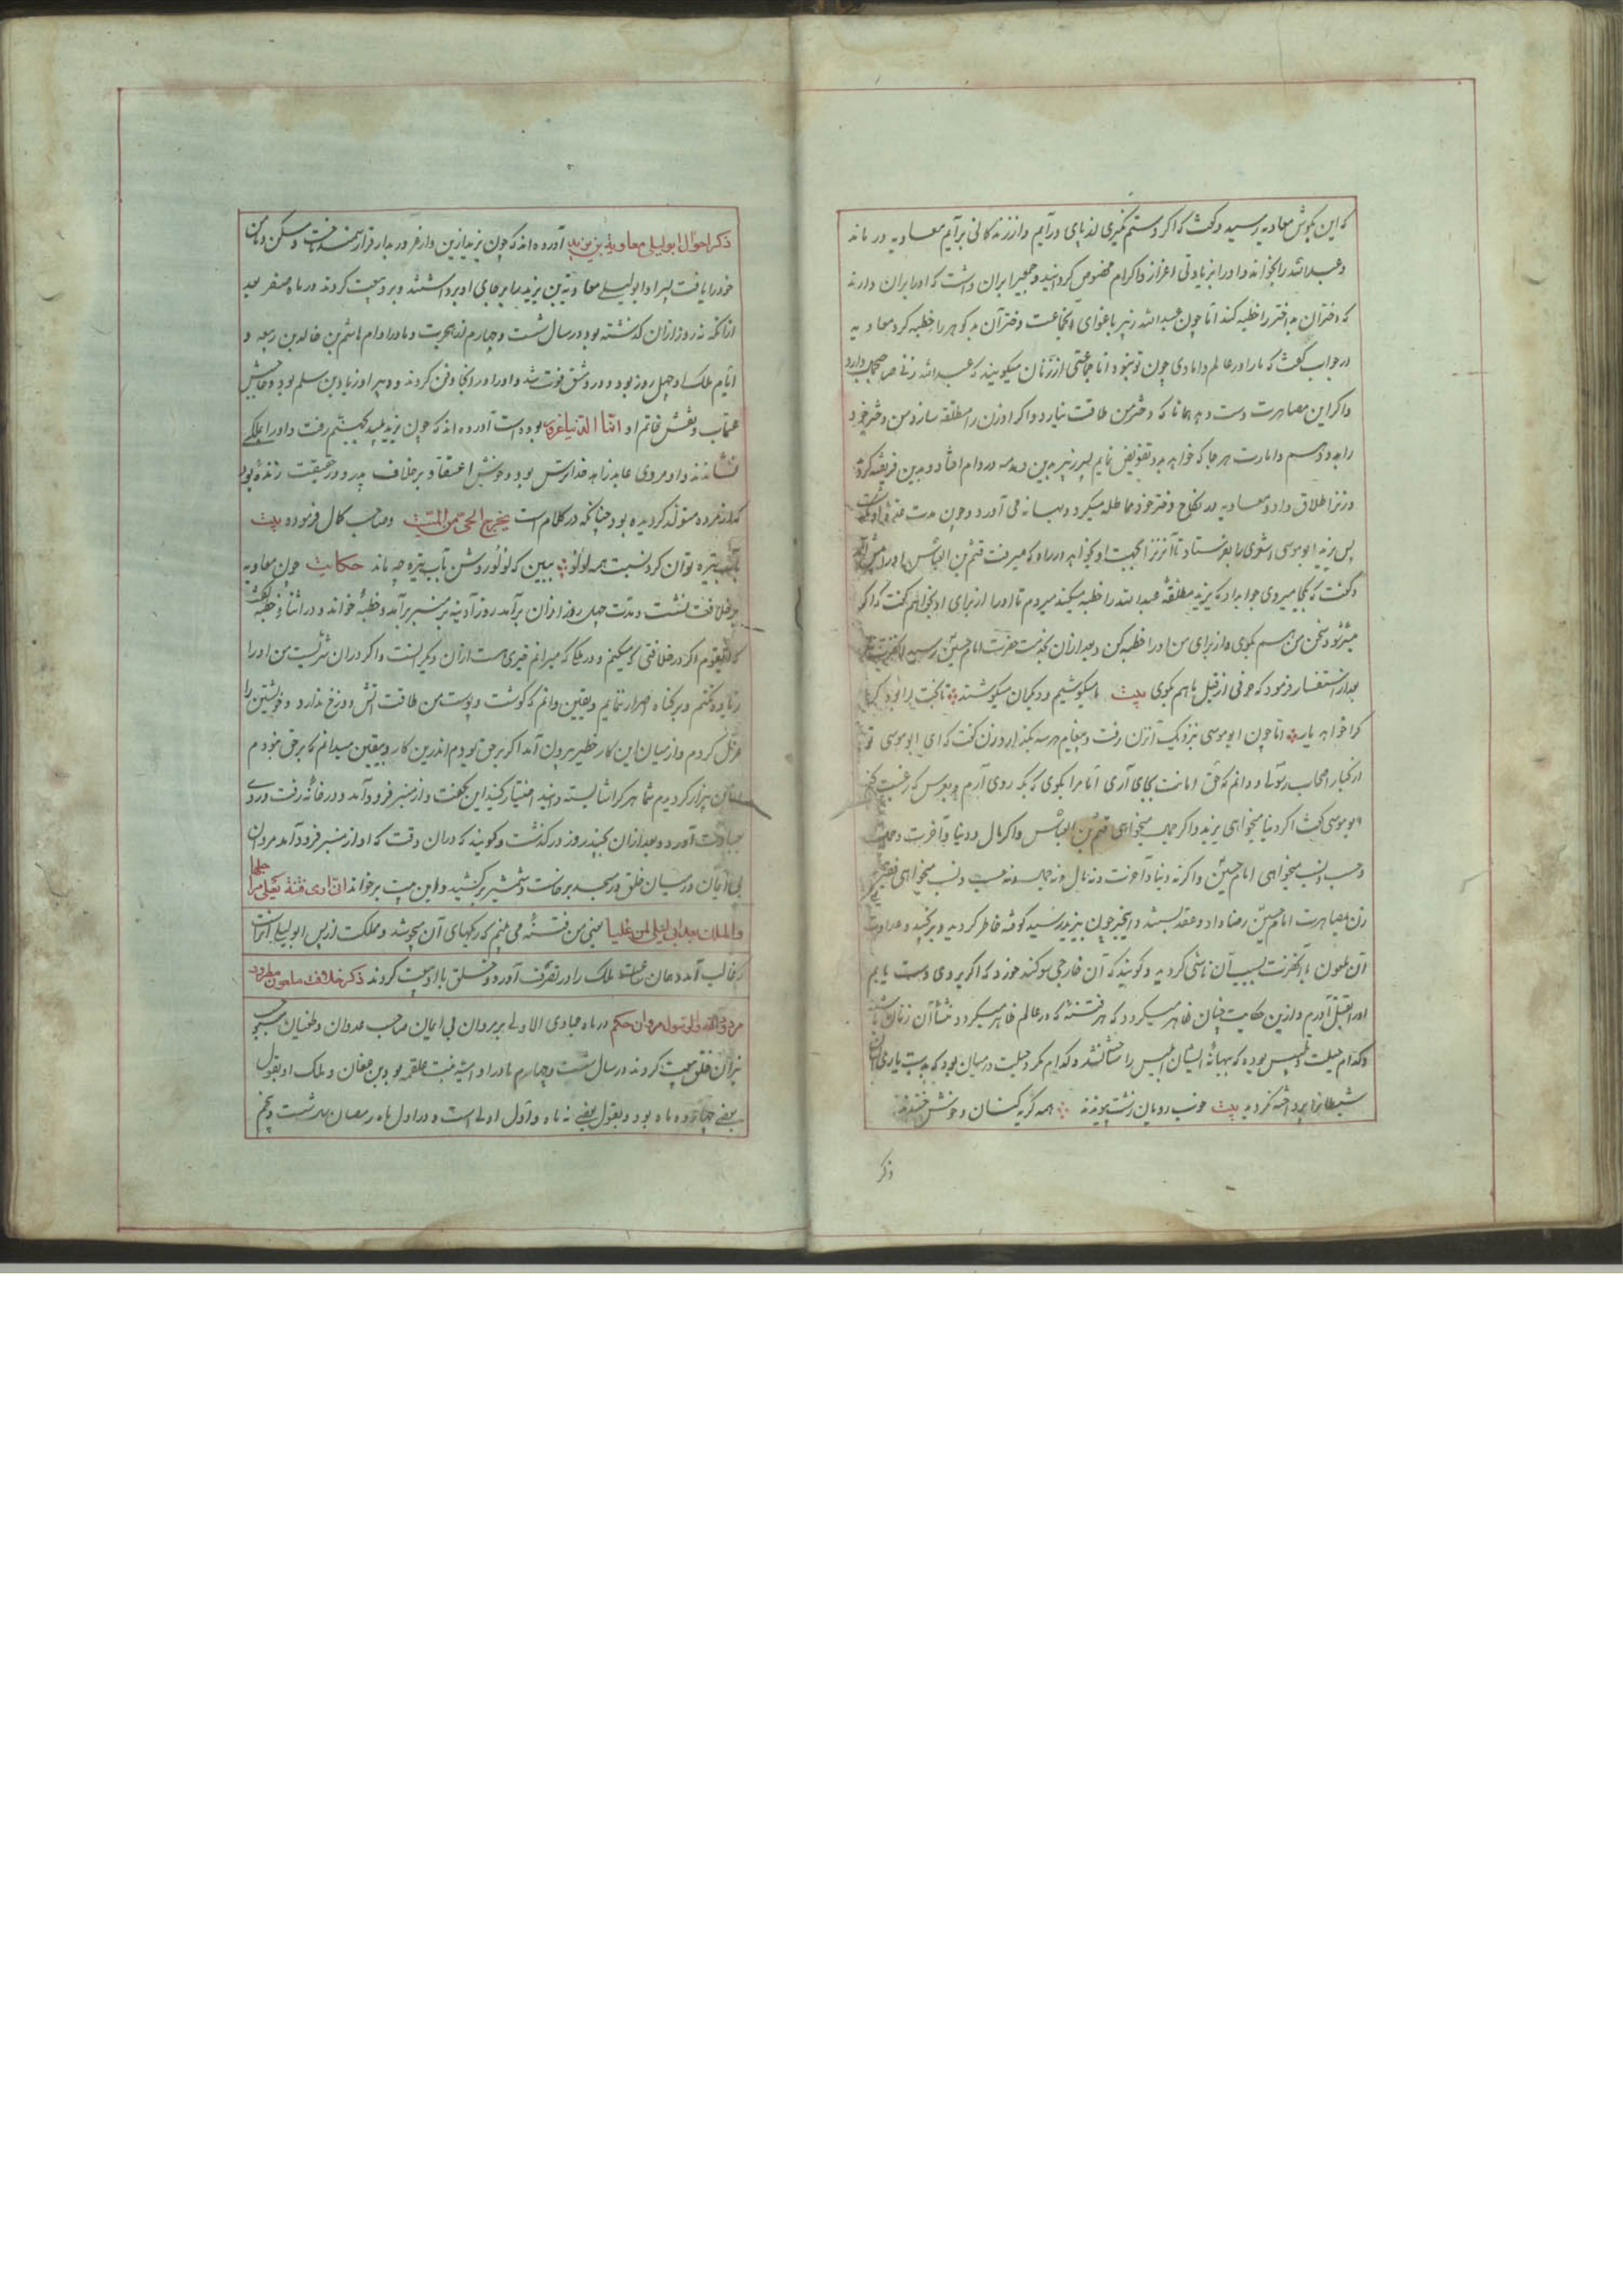 که این بگوش معاویه رسید و گفت که اگر دستم نگیری از پای درآیم و از زندگانی برآیم معاویه درماند
و عبدالله را بخواند و او را بزیادتی اعزاز و اکرام مخصوص گردانید و بر ایران داشت که او را بران دارند
که دختران دختر را خطبه کند اما چون عبدالله زبیر باغوای آنجماعت دختر آن را خطبه کرد معاویه
در جواب گفت که ما را در عالم دامادی چون تو نبود اما جماعتی از زنان میگویند که عبدالله زنی صاحب جمال دارد
و اگر این مصاهرت دست دهد همانا که دختر من طاقت نیارد و اگر او زن را مطلقه سازد من دختر خود
را بدو دهم و امارت هر جا که خواهد بدو تفویض نمایم پسر زبیر بدین در دام افتاد و بدین فریفته گردید
و زنرا طلاق داد و معاویه در نکاح دختر خود مماطله میکرد و بهانه می آورد و چون مدت
پس یزید ابوموسی اشعری را بفرستاد تا آنزنرا بجهت او بخواهد در راه که میرفت قثم بن العباس او را پیش آمد
و گفت که کجا میروی جوابداد که یزید مطلقه عبدالله را خطبه میکند میروم تا او را از برای او بخواهم گفت که اگر
میشود سخن من هم بگوی و از برای من او را خطبه کن و بعد از آن بخدمت حضرت امام حسین رسید آنحضرت
بعد از استفسار فرمود که حرفی از قبل ما هم بگوی بیت ما میکوشیم و دیگران میکوشند تا بخت کرا بود
کرا خواهد یار اما چون ابوموسی نزدیک آنزن رفت و پیغام هر سه بگذارد زن گفت که ای ابوموسی تو
از کبار اصحاب رسولی و دانم که حق امانت بجای آری اما مرا بگوی که بکه روی آرم و بدو کس که رغبت کنم
ابوموسی گفت اگر دنیا میخواهی یزید و اگر جمال میخواهی قثم بن العباس و اگر مال و دنیا و آخرت و جمال
و حسب و نسب میخواهی امام حسین و اگر نه دنیا و آخرت و نه مال و نه جمال و نه حسب و نسب میخواهی فقیر
زن بمصاهرت امام حسین رضا داد و عقد بستند و اینخبر چون بیزید رسید کوفته خاطر گردید و برنجید و عداوت
آن ملعون با آنحضرت بسبب آن ناشی گردید و گویند که آن خارجی سوگند خورد که اگر بر وی دست یابم
او را بقتل آورم و ازین حکایت چنان ظاهر میگردد که هر فتنه که در عالم ظاهر میگردد منشأ آن زنان باشند
و کدام حیلت و تلبیس بوده که بهانه ایشان ابلیس را نشانشد و کدام مکر و حیلت در میان بود که بدست یاری ایشان
شیطانرا پرداخته نگردید بیت خوب رویان زشت پیوندند همه گریه کنان و خوش خندند
ذکر
ذکر احوال ابولیلی معاویة بن یزید آورده اند که چون یزید ازین دار غرور بدار قرار رخت و مسکن و ماکن
خود را یافت پسر او ابولیلی معاویة بن یزید را بر جای او برداشتند و برو بیعت کردند در ماه صفر بعد
از آنکه نه روز از آن گذشته بود در سال شصت و چهارم از هجرت و مادر او ام هاشم بن خالد بن ربیعه و
ایام ملک او چهل روز بود و در دمشق فوت شد و او را در آنجا دفن کردند و وزیر او زیاد بن سلم بود و حاجبش
عتاب و نقش خاتم او انّا الدنیا غرور بوده است آورده اند که چون یزید پلید بجهنم رفت و او را بملک
نشاندند و او مردی عابد زاهد خداترس بود و خوش اعتقاد و بر خلاف پدر و در حقیقت زنده بود
که از مرده متولد گردیده بود چنانکه در کلام است یخرج الحی من المیت و صاحب کمال فرموده بیت
بآب تیره توان کرد نسبت همه لؤلؤ ببین که لؤلؤ روشن بآب تیره چه ماند حکایت چون معاویه
بر خلافت نشست و مدت چهل روز از آن برآمد روز آدینه بر منبر برآمد و خطبه خواند و در اثنای خطبه گفت
که ای قوم اگر در خلافتی که میکنم و در ملکی که میرانم خیری هست از آن دیگر است و اگر در آن شریست من او را
زیاده نکنم و بر گناه اصرار ننمایم و یقین دانم که گوشت و پوست من طاقت آتش دوزخ ندارد و خویشتن را
عزل کردم و از میان این کار خطیر بیرون آمدم اگر بر حق بودم اندرین کار و بیقین میدانم که بر حق نبودم
بیزار گردیدم شما هر کرا شایسته دانید اختیار کنید این بگفت و از منبر فرود آمد و در خانه رفت و روی
بعبادت آورد و بعد از آن بچند روز درگذشت و گویند که در آن وقت که او از منبر فرود آمد مروان
بی ایمان در میان خلق در مسجد برخاست و شمشیر برکشید و این بیت برخواند انی اری فتنة تغلی مراجلها
والملك بعد ابی لیلی لمن غلبا یعنی من فتنه می بینم که دیگهای آن میجوشد و مملکت از پس ابولیلی آنراست
که غالب آمد و همان ساعت ملک را در تصرف آورد و خلق با او بیعت کردند ذکر خلافت ملعون مطرود
مردود الله والرسول مروان حکم در ماه جمادی الاولی بر مروان بی ایمان صاحب عدوان و طغیان
نیران خلق بیعت کردند در سال شصت و چهارم مادر او آمنه بنت علقمه بود بن صفوان و ملک او بقول
بعضی چهارده ماه بود و بقول بعضی نه ماه و اول اولی است و در اول ماه رمضان شصت و پنجم